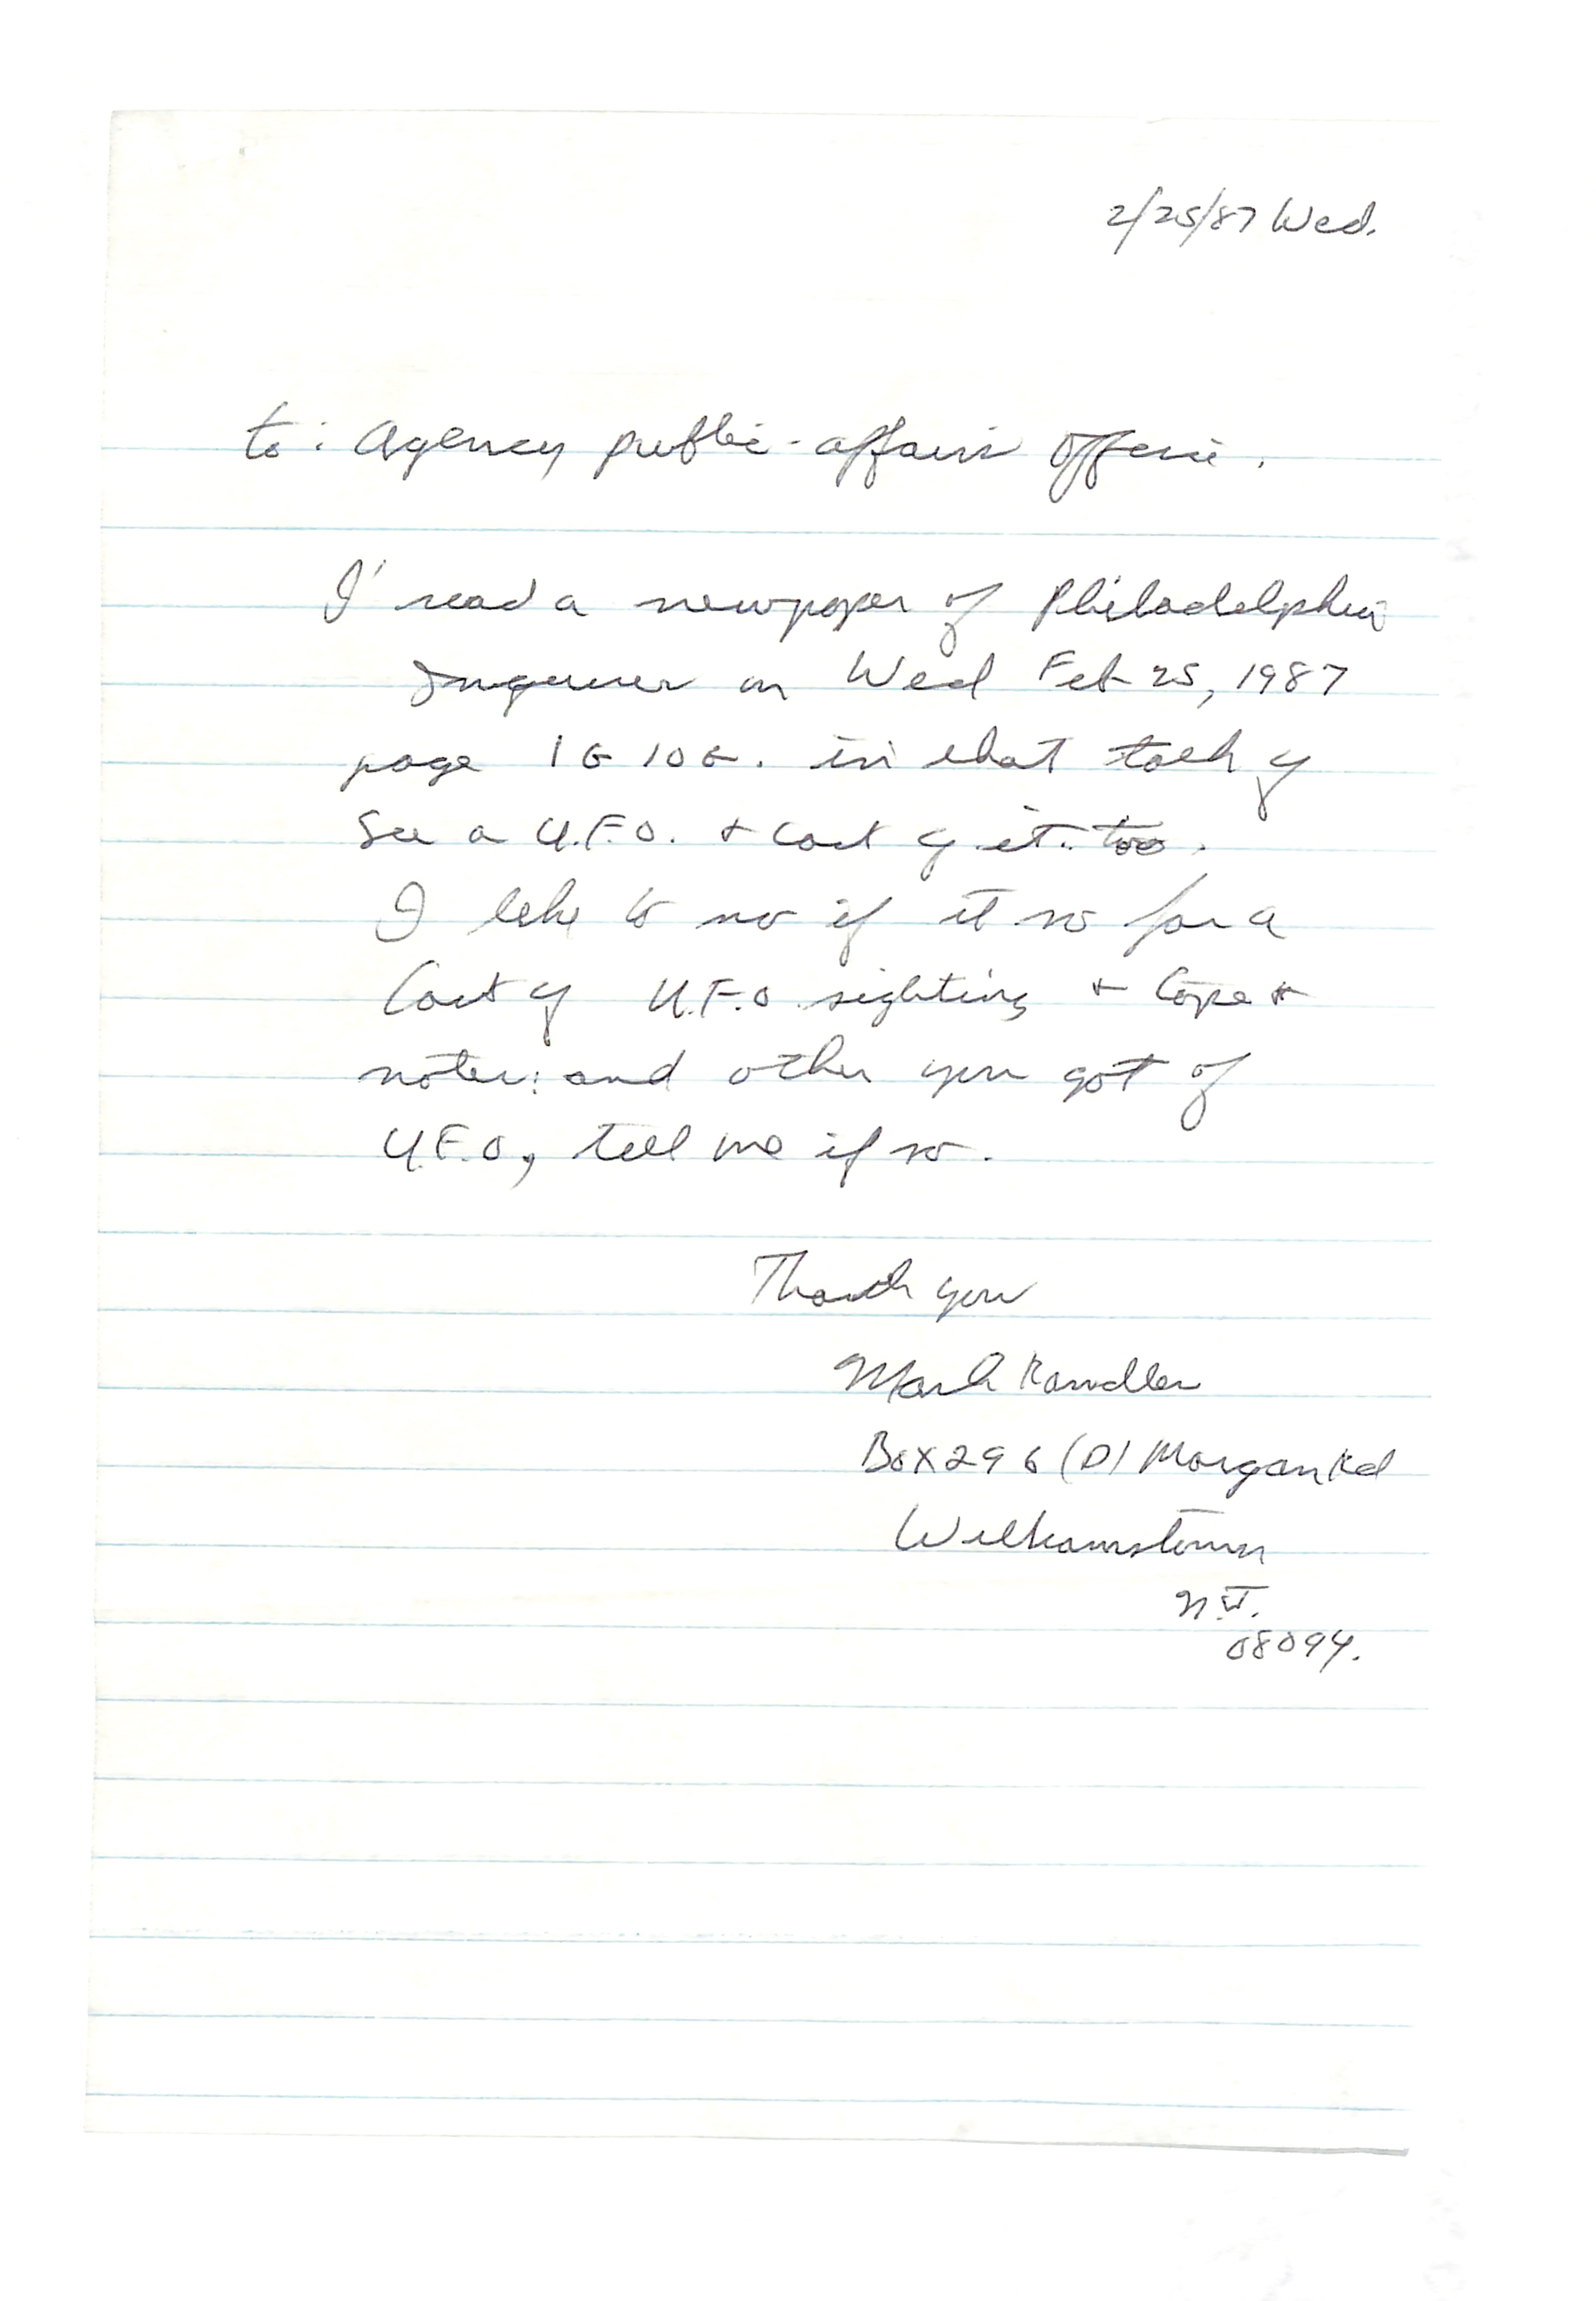 2/25/87 Wed.
to: Agency public-affair office.
I read a newpaper of Philadelphia
Inquirer on Wed Feb 25, 1987
page 1G 10G. in that talk of
See a U.F.O. + cost of it. too.
I like to no if it so for a
Cost of U.F.O. sighting + Cope +
notes: and other you got of
U.F.O, tell me if so.
Thank you
Mark Randler
Box 296 (D) Morgan Rd
Williamstown
N.J.
08094.